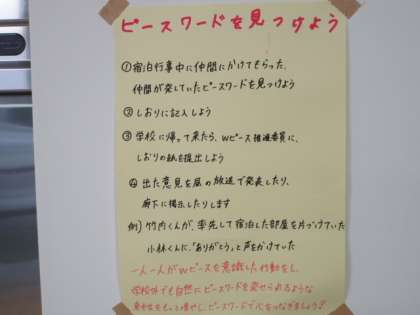 ピースワードを見つけよう
①宿泊行事中に仲間にかけてもらった、
仲間が発していたピースワードを見つけよう
②しおりに記入しよう
③学校に帰って来たら、Wピース推進委員に、
しおりの紙を提出しよう
④出た意見を昼の放送で発表したり、
廊下に掲示したりします
例)竹内くんが、率先して宿泊した部屋を片づけていた
小林くんに、「ありがとう」と声をかけていた
一人一人がWピースを意識した行動をし、
学校外でも自然にピースワードを発せられるような
をもっと増やし、ピースワードで心をつなぎましょう!